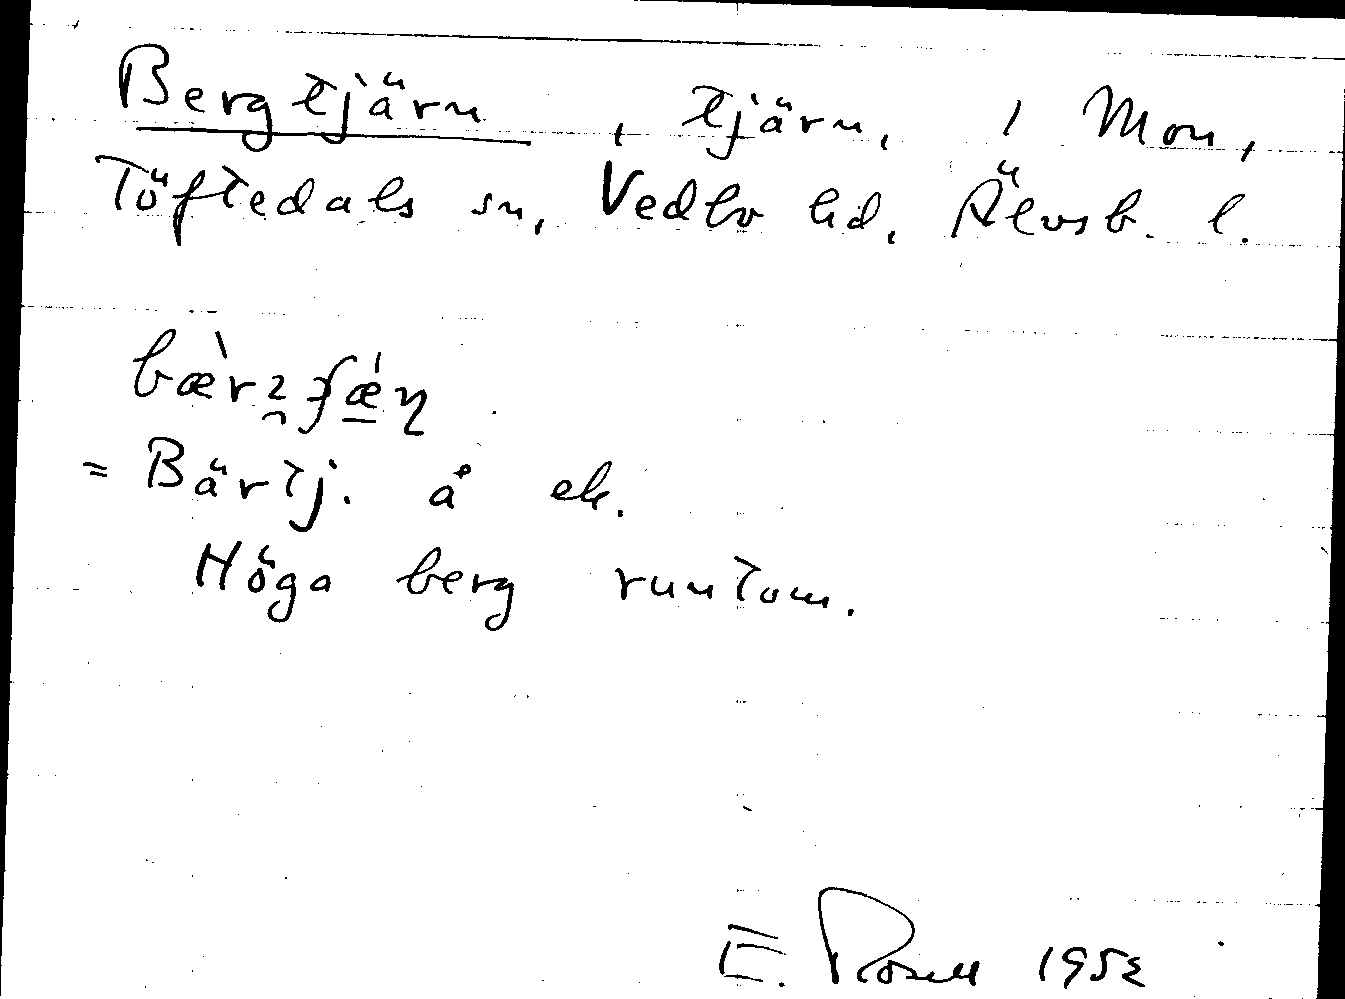 Bergtjärn, tjärn, 1 Mon,
Töftedals sn, Vedbo hd, Älvsb. l.
= Bärtj. å ek.
Höga berg runtom.
E. Rosell 1952